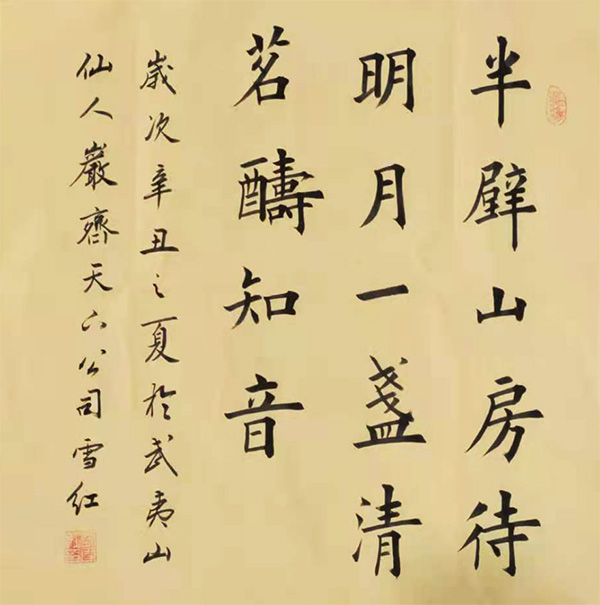 半壁山房待
明月一盏清
茗醻知音
歲次辛丑之夏於武夷山
仙人巖齊天下公司雪红